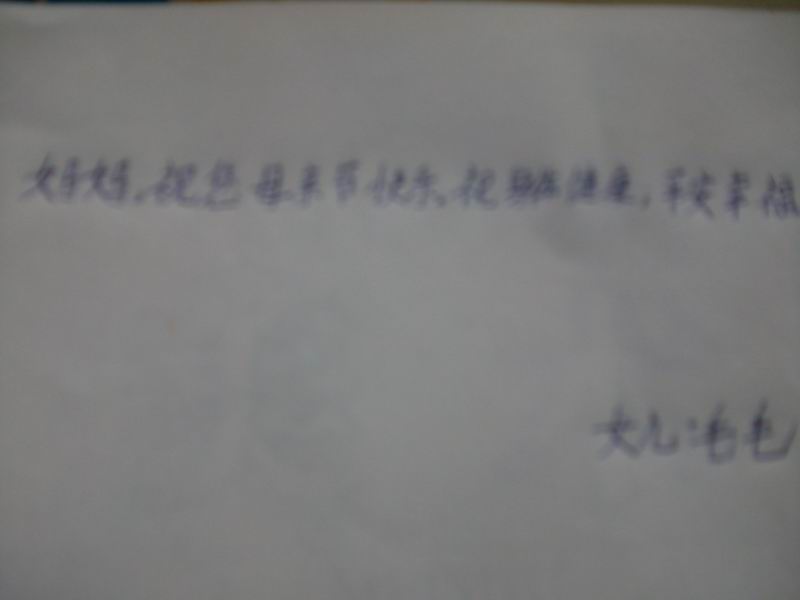 妈妈，祝您母亲节快乐，祝身体健康，平安幸福
女儿：毛毛